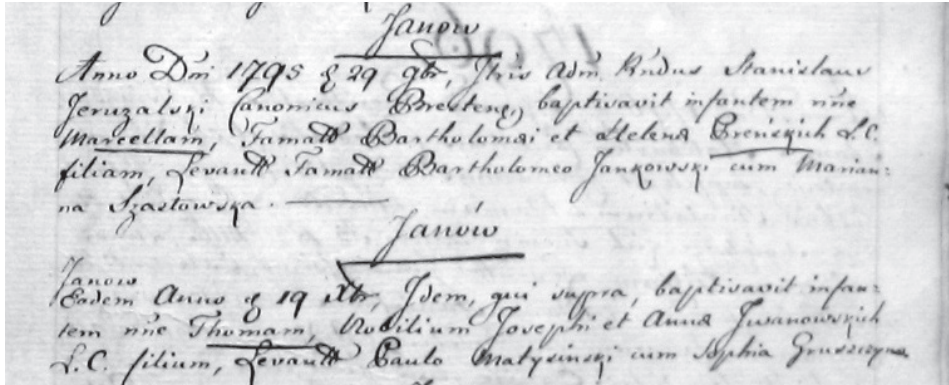 Janow
Anno Dñi 1795 d 29 9br, Jtris Adm. Rndus Stanislaus
Jeruzalski Canonicus Brestens, baptisavit infantem nñe
Marcellam, Famatt Bartholomæi et Helenæ Preńskich L.C.
filiam, Levantt Famatt Bartholomeo Jankowski cum Marian:
na Szastowska.
Janów
Janow
Eadem Anno d 19 Xbr, Jdem, qui supra, baptisavit infan=
tem nñe Thomam, Nobilium Josephi et Annæ Jwanowskich
L.C. filium, Levantt Paulo Matysinski cum Sophia Gruszczyna